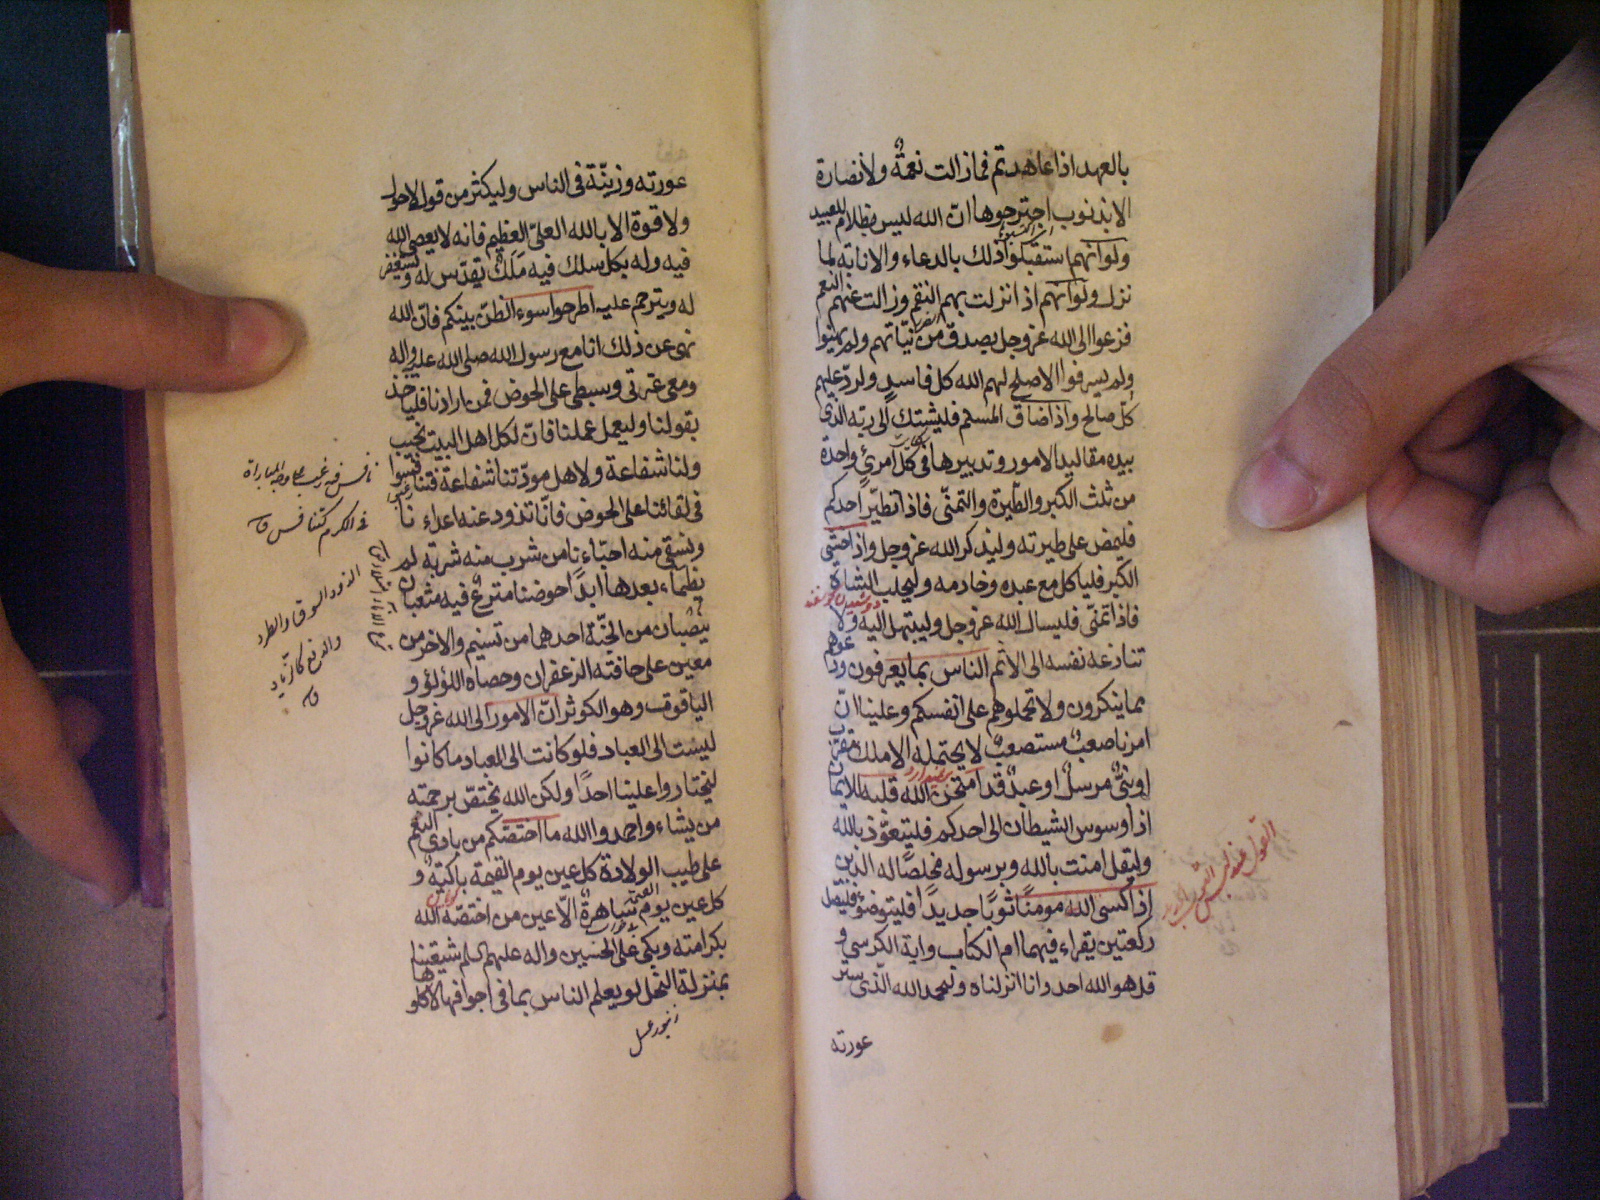 بالعهد اذا عاهدتم فما زالت نعمة ولا نضارة
الا بذنوب اجترحوها انّ الله ليس بظلام للعبيد
ولو انهم استقبلوا ذلك بالدعاء والانابة لما
نزل ولو انهم اذا نزلت بهم النقم وزالت عنهم النعم
فزعوا الى الله عزوجل بصدق من نيّاتهم ولم يهنوا
ولم يسرفوا لاصلح لهم الله كل فاسد ولردّ عليهم
كلّ صالح واذا ضاق المسلم فليشتك الى ربه الذى
بيده مقاليد الامور وتدبيرها فى كلّ امرئ واحدة
من ثلث الكبر والطّيرة والتمنّى فاذا تطيّر احدكم
فليمض على طيرته وليذكر الله عزوجل واذا خشى
الكبر فلياكل مع عبده وخادمه وليحلب الشاة
فاذا تمنّى فليسال الله عزوجل وليبتهل اليه ولا
تنازعه نفسه الى الاثم الناس بما يعرفون ودعوهم
مما ينكرون ولا تحملوهم على انفسكم وعلينا انّ
امرنا صعب مستصعب لا يحتمله الا ملك مقرّب
او نبىّ مرسل او عبد قد امتحن الله قلبه للايمان
اذا وسوس الشيطان الى احدكم فليتعوّذ بالله
وليقل امنت بالله وبرسوله مخلصًا له الدين
اذا كسى الله مومنًا ثوبًا جديدًا فليتوضؤ وليصل
ركعتين يقراء فيهما ام الكتاب واية الكرسي و
قل هو الله احد وانا انزلناه وليحمد الله الّذى ستر
عورته
عورته وزيّنه فى الناس وليكثر من قول لا حول
ولا قوة الا بالله العلىّ العظيم فانه لا يعصى الله
فيه وله بكل سلك فيه ملك يقدّس له ويستغفر
له ويترحم عليه اطرحوا سوء الظنّ بينكم فانّ الله
نهى عن ذلك انا مع رسول الله صلى الله عليه واله
ومعى عترتى وسبطى على الحوض فمن ارادنا فليأخذ
بقولنا وليعمل عملنا فانّ لكل اهل البيت نجيب
ولنا شفاعة ولاهل مودّتنا شفاعة فتنافسوا
فى لقائنا على الحوض فانّا نذود عنه اعداءنا
ونسقى منه احبّاءنا من شرب منه شربة لم
يظماء بعدها ابدًا حوضنا مترع فيه مثعبان
ينصبان من الجنّة احدهما من تسنيم والاخر من
معين على حافته الزعفران وحصاه اللؤلؤ و
الياقوت وهو الكوثر انّ الامور الى الله عزوجل
ليست الى العباد فلو كانت الى العباد ما كانوا
ليختاروا علينا احدًا ولكن الله يختصّ برحمته
من يشاء واحمدوا الله ما اختصّكم من بادى النعم
على طيب الولادة كل عين يوم القيمة باكية و
كل عين يوم القيمة ساهرة الّا عين من اختصّه الله
بكرامته وبكى على الحسين واله عليهم السلم شيعتنا
بمنزلة النحل لو يعلم الناس بما فى اجوافها لاكلوها